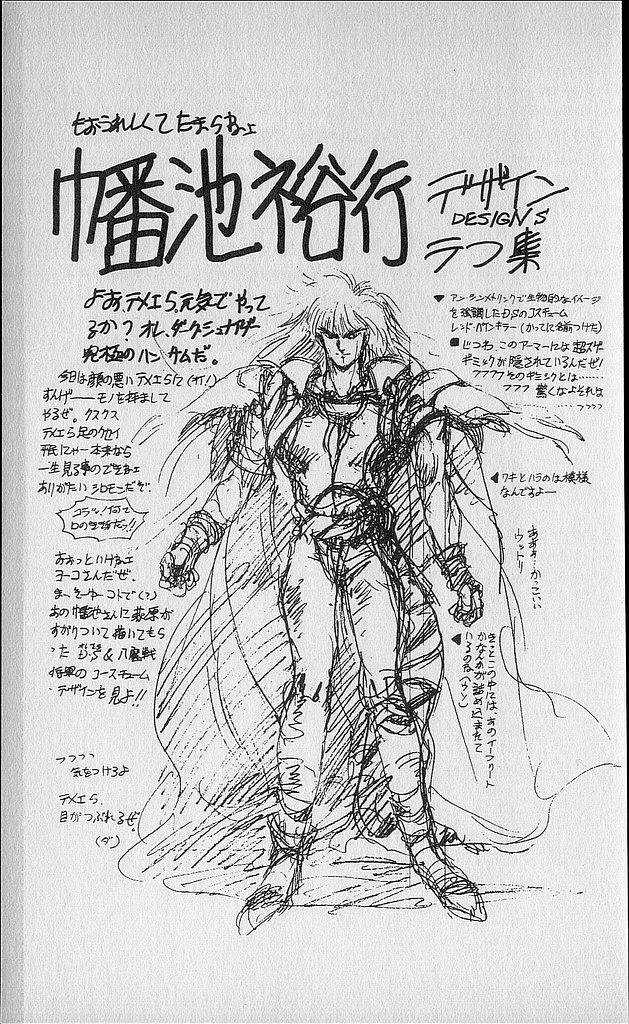 もおうれしくてたまらねーよ
幡池裕行
デザイン
DESIGN'S
ラフ集
よお、テメエら、元気でやって
るか？オレ、ダークシュナイダー
究極のハンサムだ。
今日は顔の悪いテメエらに(オイ!)
すんげーーモノを拝まして
やるぜ。クスクス
テメエら足のクセイ
平民にゃー本来なら
一生見る事のできねェ
ありがたいシロモンだぞ。
コラッ！何て
口の生物だっ!!
おおっといけねェ
ヨーコさんだぜ。
ま、そーゆーコトで(?)
あの幡池さんに萩原が
すがりついて描いてもら
った D.S & 八魔戦
将軍のコースチューム
・デザインを見よ!!
フフフフ
気をつけろよ
テメエら、
目がつぶれるぜ。
(ダ)
▼アン・シンメトリックで生物的なイメージ
を強調したD.Sのコスチューム
レンド・バインキラー(かってに名前つけた)
■じつわ、このアーマーには超スゲー
ギミックが隠されているんだぜ!
フフフフそのギミックとは……
フフフ 驚くなよそれは
……フフフフ
◀ワキとハラのは模様
なんですよー
ああぁ…かっこいい
ウットリ
◀きっとこの中には、あのイーフリート
かなんかが詰め込まれて
いるのな(うそ)